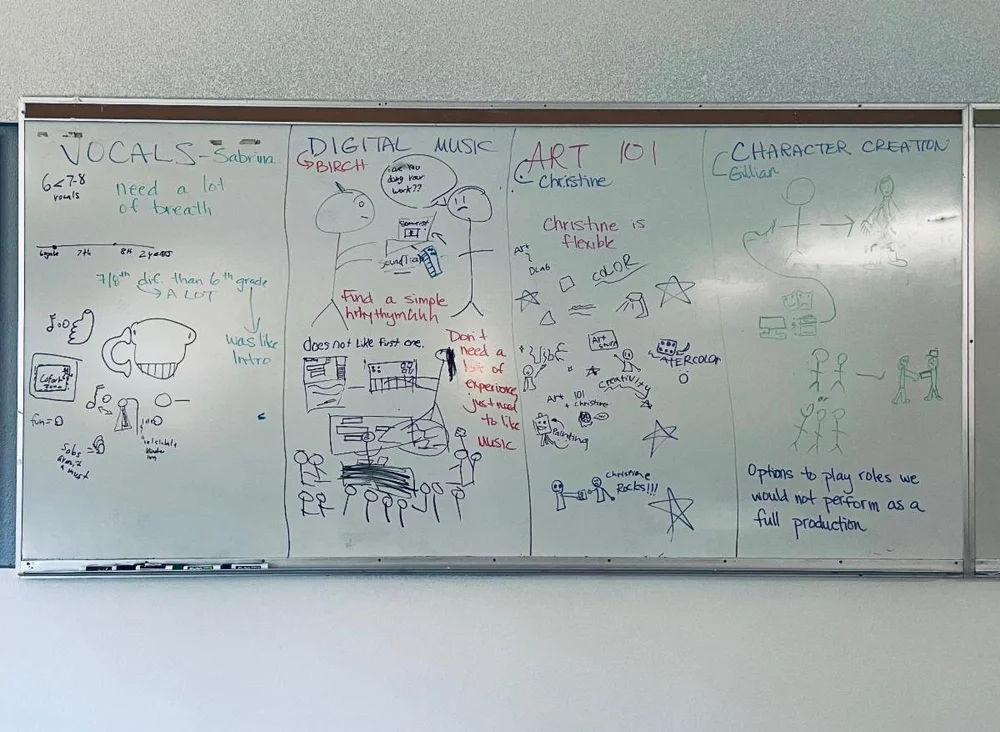 VOCALS - Sabrina
6 < 7-8
vocals
need a lot
of breath
6grade 7th 8th 2 years
7/8th dif. than 6th grade
A LOT
was like
Intro
fun =
DIGITAL MUSIC
BIRCH
are you
doing your
work??
Find a simple
hrhythymahh
does not like first one.
Don't
need a
lot of
experience,
just need
to like
MUSIC
ART 101
Christine
Christine is
flexible
Art
COLOR
Art
WATERCOLOR
creativity
Art 101
+ christine
Painting
Christine
Rocks!!!
CHARACTER CREATION
Gillian
or
Options to play roles we
would not perform as a
full production